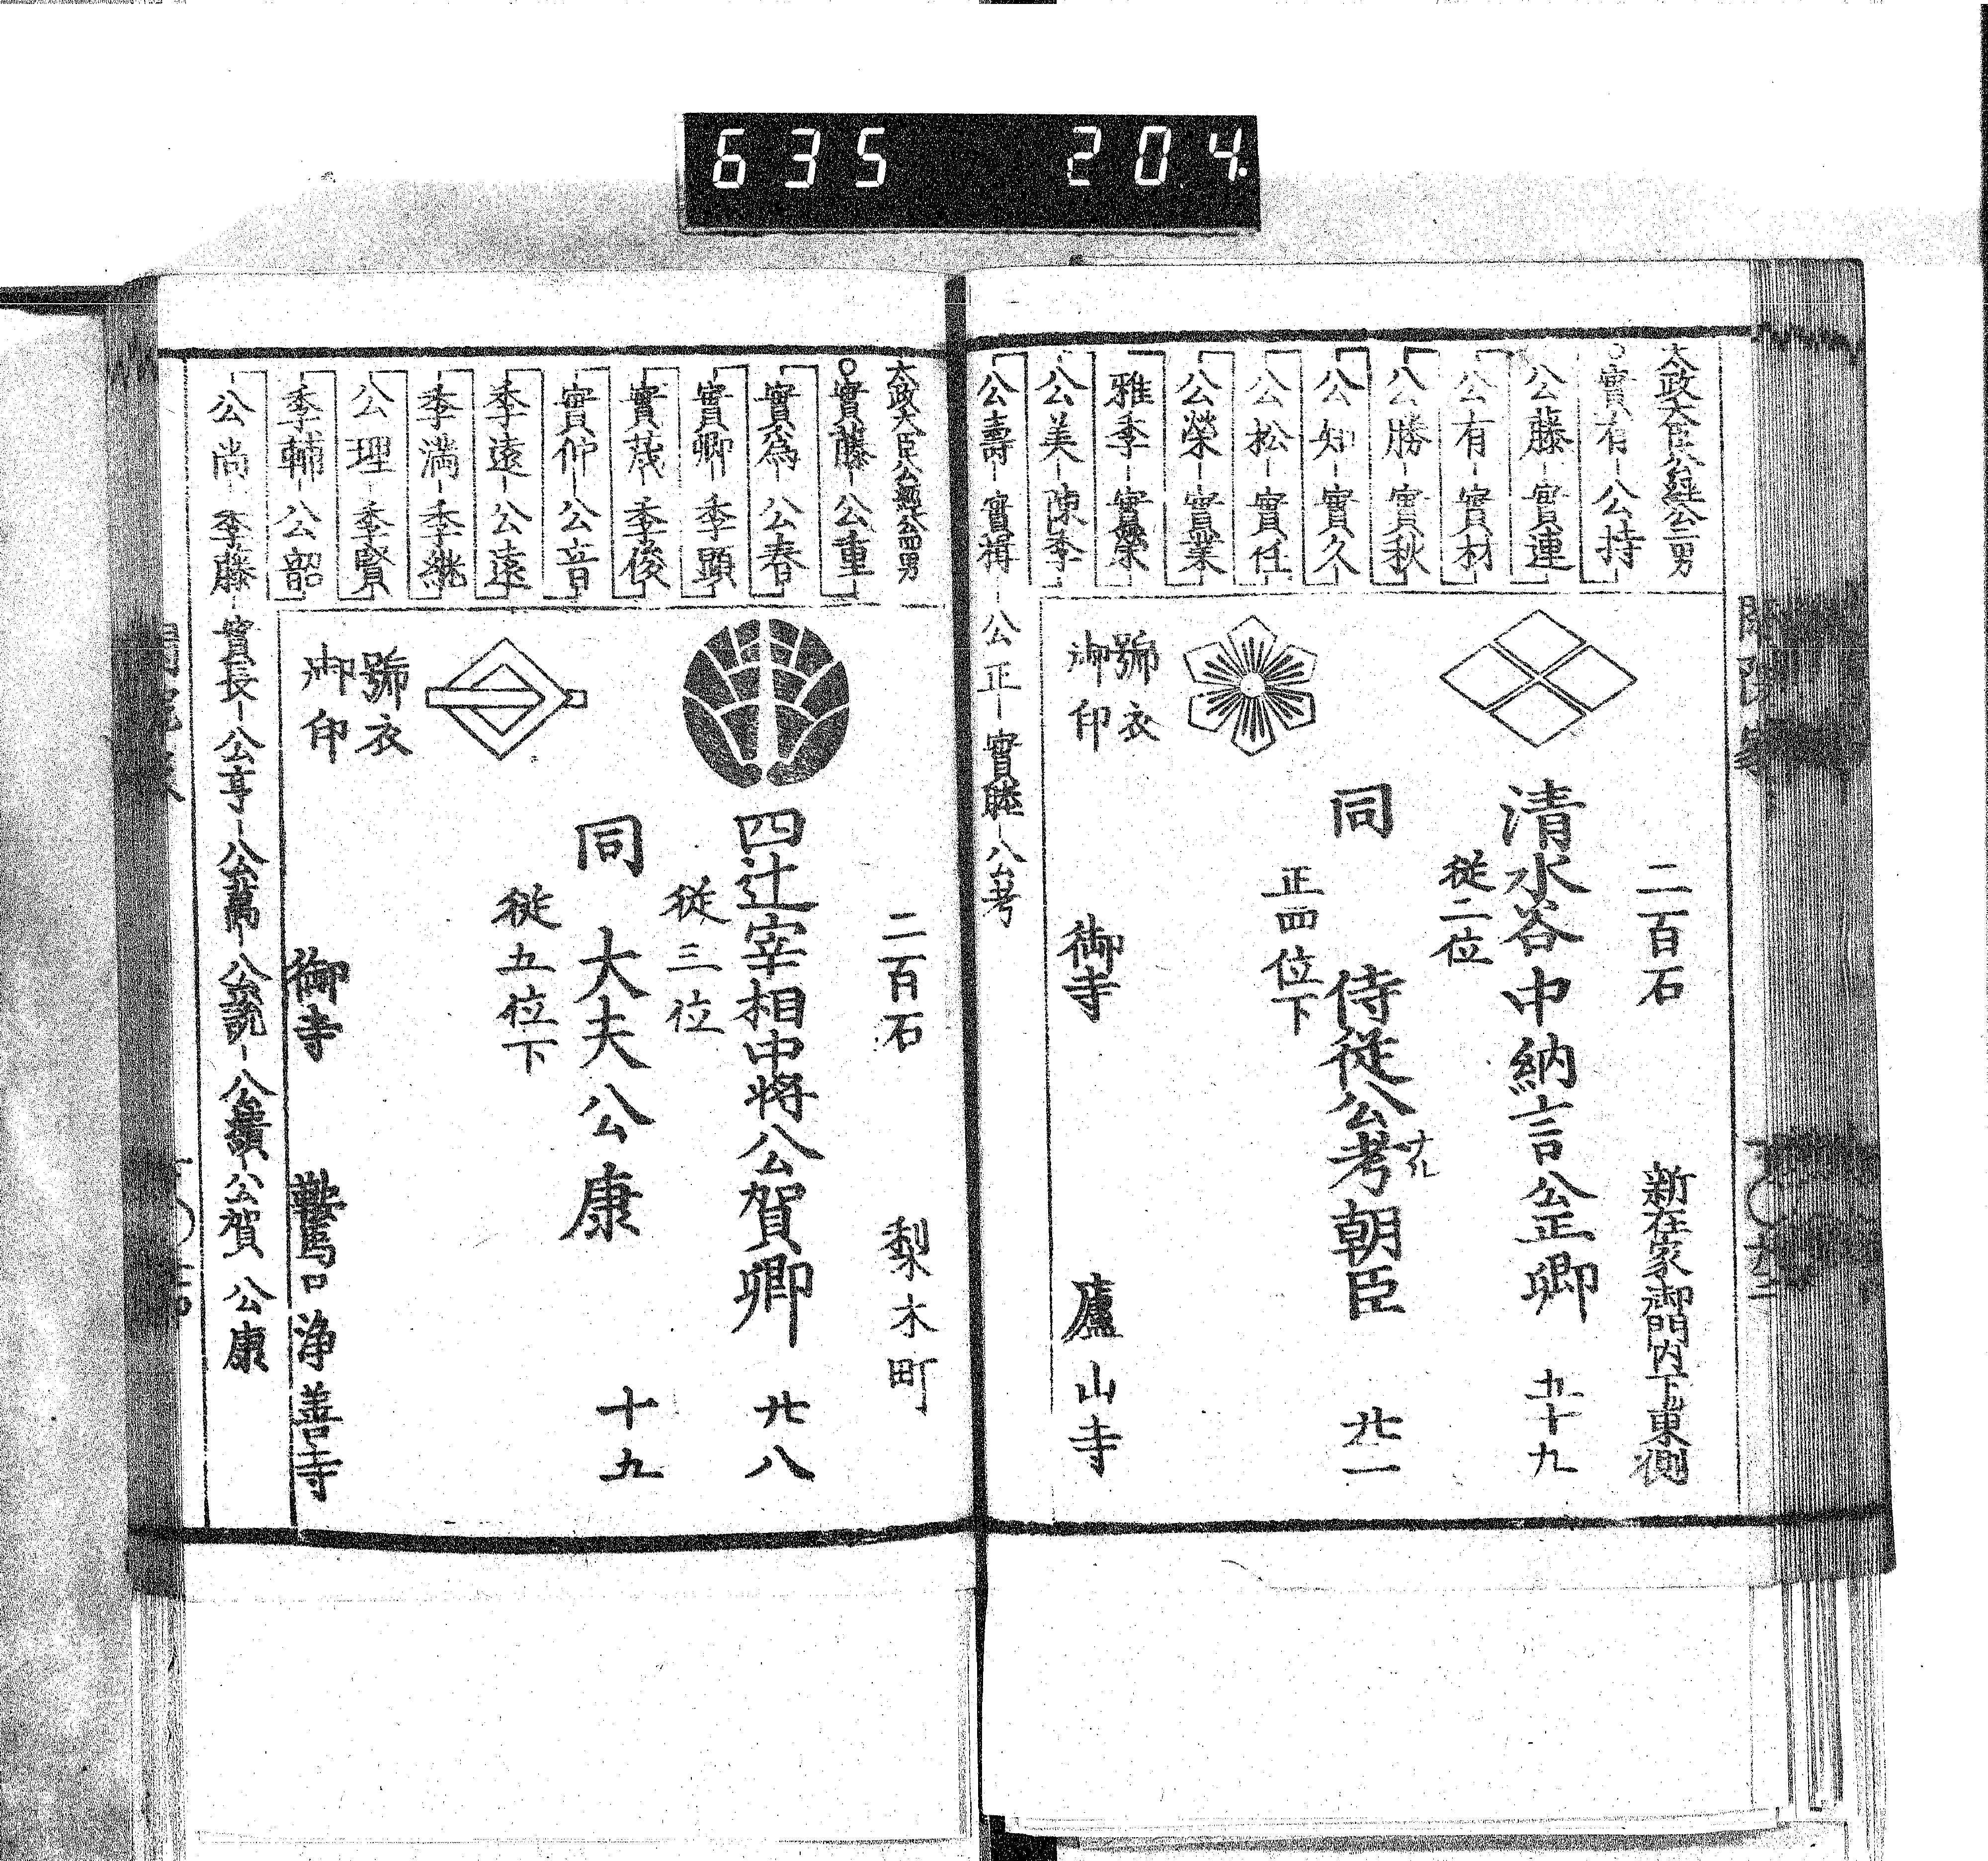 635 204
太政大臣公経公二男
○實有－公持
公藤－實連
公有－實材
公勝－實秋
公知－實久
公松－實任
公榮－實業
雅季－實榮
公美－陳季
公壽－實揖－公正－實睦－公考
二百石 新在家御門内下ル東側
清水谷中納言公正卿 五十九
従二位
同 侍従公考朝臣 廿一
正四位下
號衣
御印
御寺 廬山寺
太政大臣公經公四男
○實藤－公重
實為－公春
實卿－季顕
實茂－季俊
實仲－公音
季遠－公遠
季満－季継
公理－季賢
季輔－公韶
公尚－季藤－實長－公亨－公萬－公説－公績－公賀 公康
二百石 梨木町
四辻宰相中将公賀卿 廿八
従三位
同 大夫公康 十九
従五位下
號衣
御印
御寺 鞍馬口浄善寺